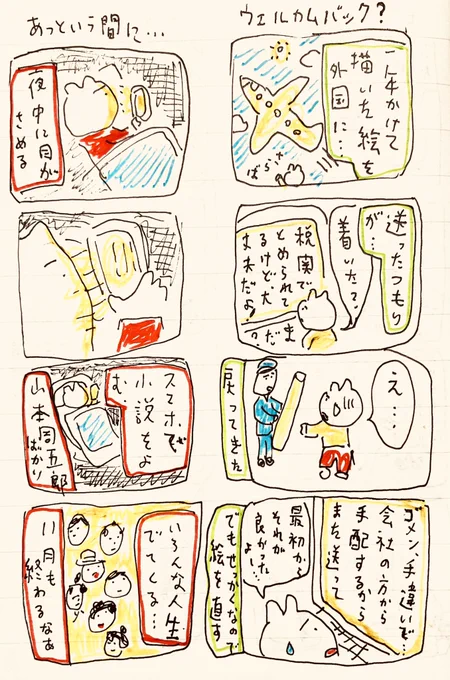 ウェルカムバック?
年かけて
描いた絵を
外国に…
さらば
送ったつもり
が…
着いた?
税関で
とめられて
るけど、大
丈夫だよ!
まだ?
え…
戻ってきた
ゴメン、手違いで…
会社の方から
手配するから
また送って
最初から
それが
良かったよー!
でもせっかくなので
絵を直す
あっという間に…
夜中に目が
さめる
スマホで
小説をよ
む
山本周五郎
ばかり
いろんな人生
でてくる…
11月も
終わるなぁ